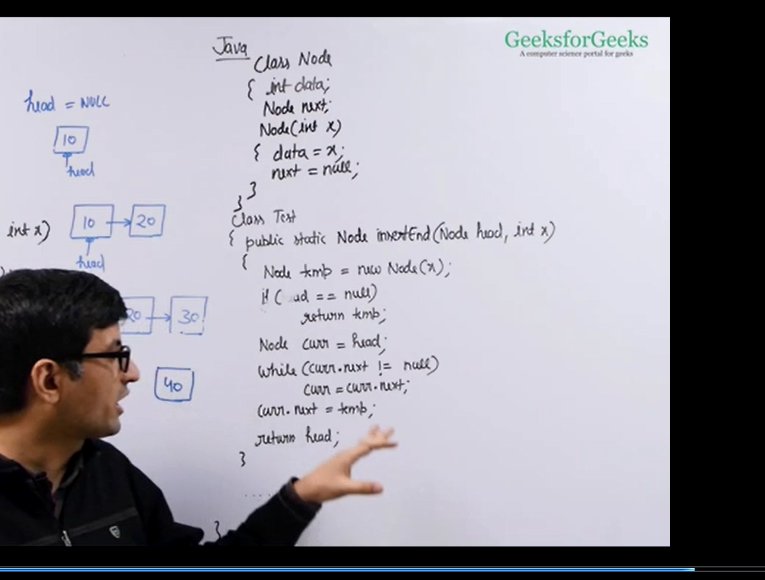 GeeksforGeeks
A computer science portal for geeks
head = NULL
10
head
int x)
10 → 20
head
20 → 30
40
Java
Class Node
{ int data;
Node next;
Node(int x)
{ data = x;
next = null;
}
}
Class Test
{ public static Node insertEnd(Node head, int x)
{
Node tmp = new Node(x);
if ( ad == null)
return tmp;
Node curr = head;
while (curr.next != null)
curr = curr.next;
curr.next = tmp;
return head;
}
.....
}